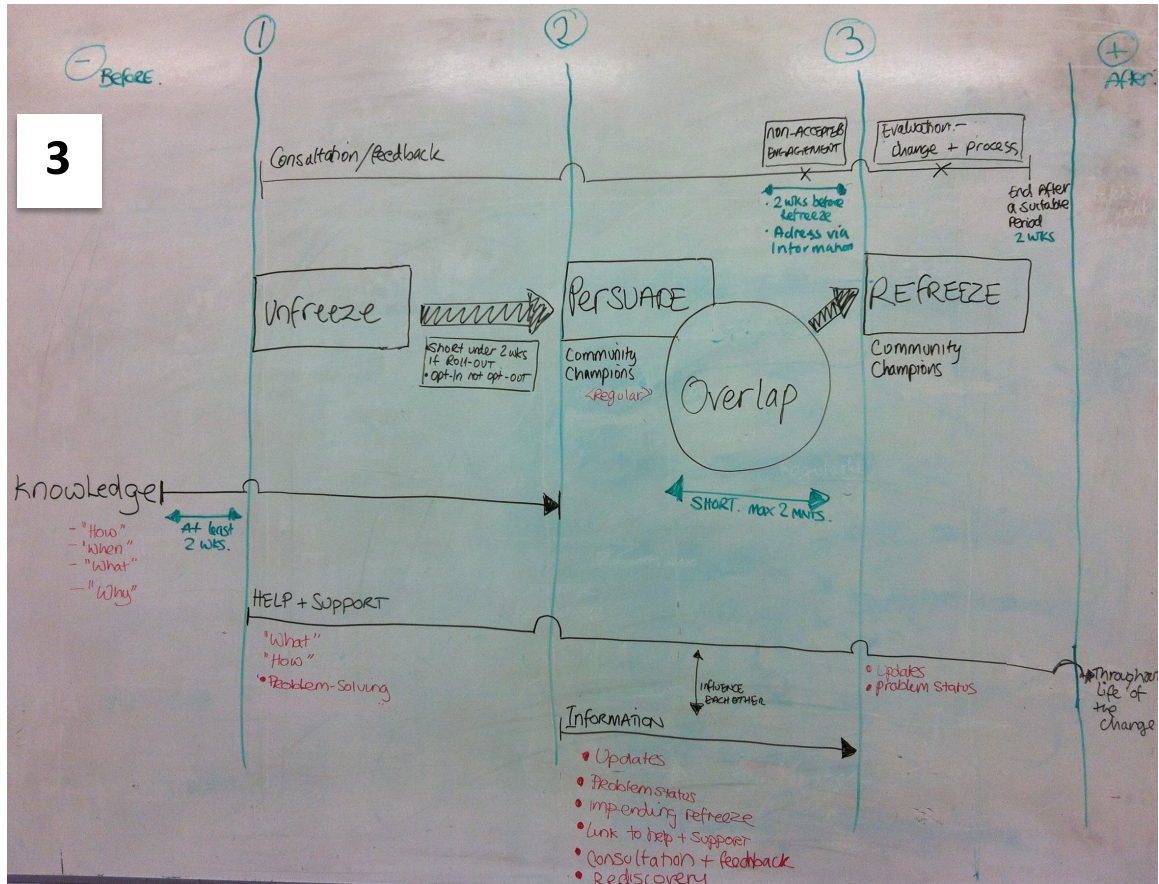 1
2
3
- BEFORE.
+ After.
3
Consultation/feedback
NON-ACCEPTED
ENGAGEMENT
Evaluation:-
change + process
x
x
• 2 wks before
Refreeze
• Adress via
Information
End After
a Suitable
Period
2 wks
Unfreeze
PERSUADE
REFREEZE
• Short under 2 wks
if Roll-OUT
• Opt-In not opt-out
Community
Champions
<Regular>
Overlap
Community
Champions
Knowledge
At least
2 wks.
- "How"
- "When"
- "What"
- "Why"
SHORT. Max 2 MNTS.
HELP + SUPPORT
"What"
"How"
• Problem-Solving
INFLUENCE
EACH OTHER
• Updates
• problem status
Throughout
life of
the
change
INFORMATION
• Updates
• Problem status
• Impending refreeze
• Link to help + support
• Consultation + feedback
• Rediscovery